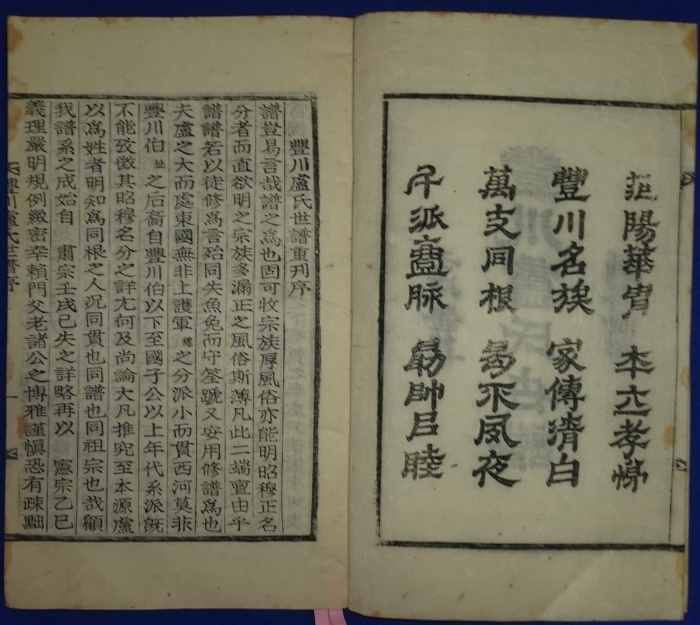 范陽華胄 本立孝悌
豐川名族 家傳清白
萬支同根 曷不夙夜
千派壹脉 勗帥㠯睦
豐川盧氏世譜重刊序
譜豈易言哉譜之爲也固可收宗族厚風俗亦能明昭穆正名
分者而直欲明之宗族多漏正之風俗斯薄凡此二端亶由乎
譜譜若以徒修爲言殆同失魚兔而守筌蹏又安用修譜爲也
夫盧之大而處東國無非上護軍 之分派小而貫西河莫非
豐川伯 之后裔自豐川伯以下至國子公以上年代系派旣
不能攷徵其昭穆名分之詳尤何及尚論大凡推究至本源盧
以爲姓者明知爲同根之人况同貫也同譜也同祖宗也哉顧
我譜系之成始自 肅宗壬戌已失之詳略再以 憲宗乙巳
義理嚴明規例緻密幸賴門父老諸公之博雅謹愼恐有疎黜
豐川盧氏世譜序